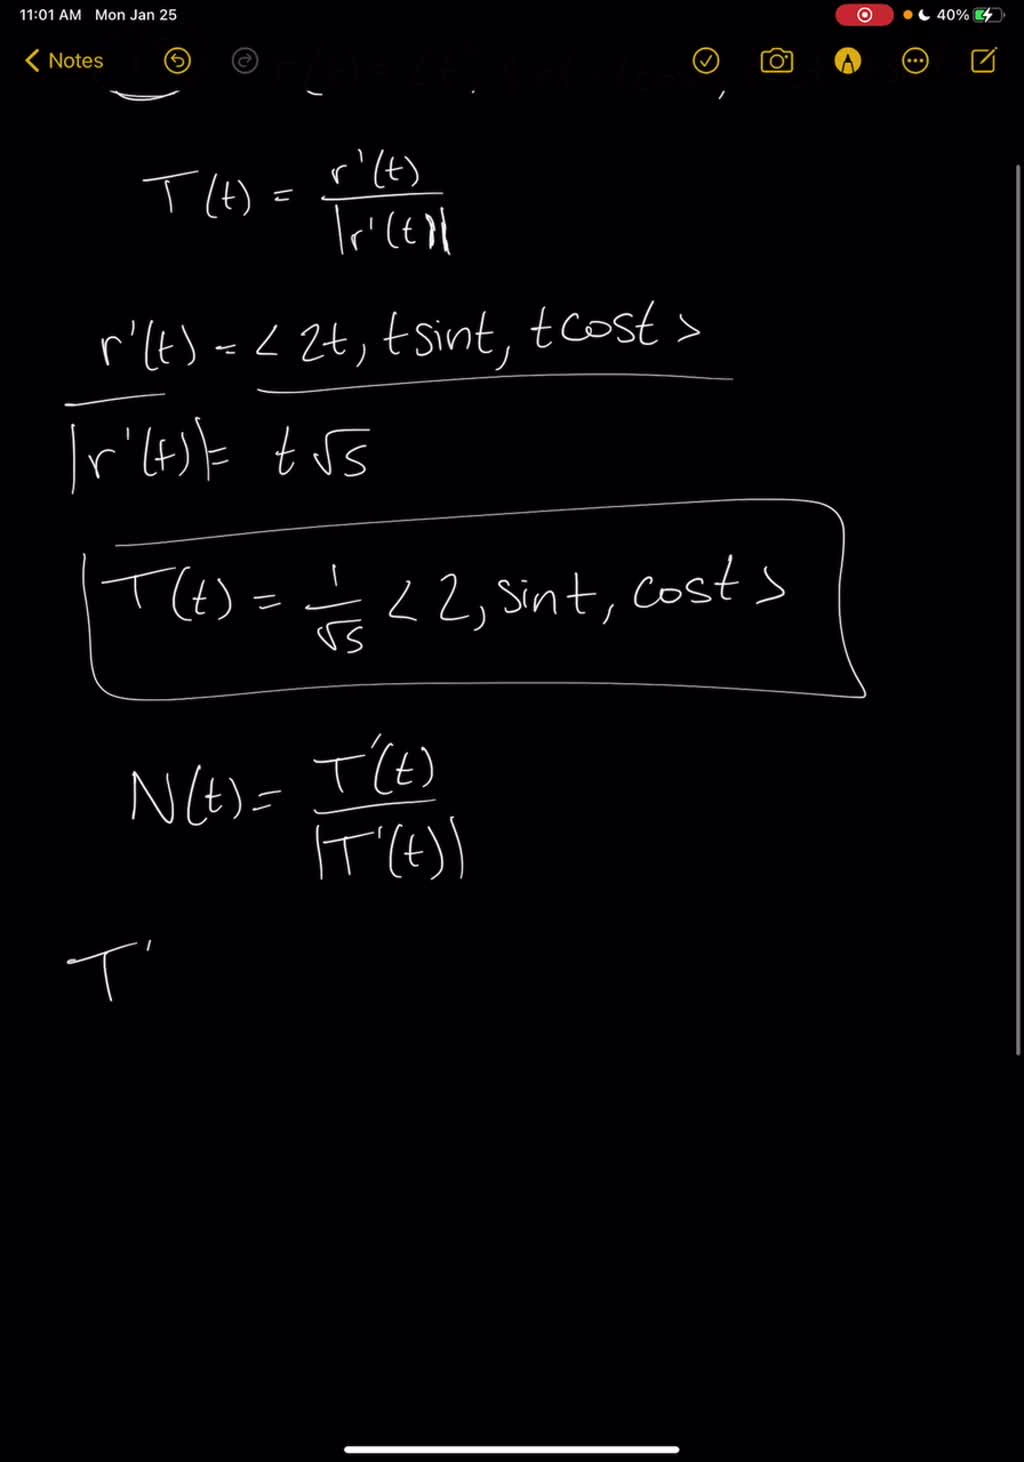 11:01 AM Mon Jan 25 40%
Notes
T(t) = r'(t) / |r'(t)|
r'(t) = < 2t, t sint, t cost >
|r'(t)| = t√5
T(t) = 1/√5 < 2, sint, cost >
N(t) = T'(t) / |T'(t)|
T'